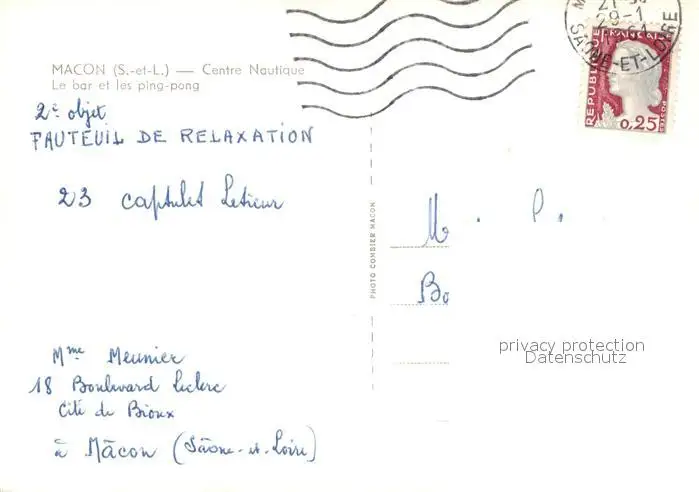 MACON (S.-et-L.) — Centre Nautique
Le bar et les ping-pong
2e objet
FAUTEUIL DE RELAXATION
23
Mme Meunier
18 Boulevard Leclerc
Cité de Bioux
à Mâcon (Sâone-et-Loire)
PHOTO COMBIER MACON
29-1
SAÔNE-ET-LOIRE
REPUBLIQUE FRANÇAISE
POSTES
0,25
M. P.
Bo
privacy protection
Datenschutz